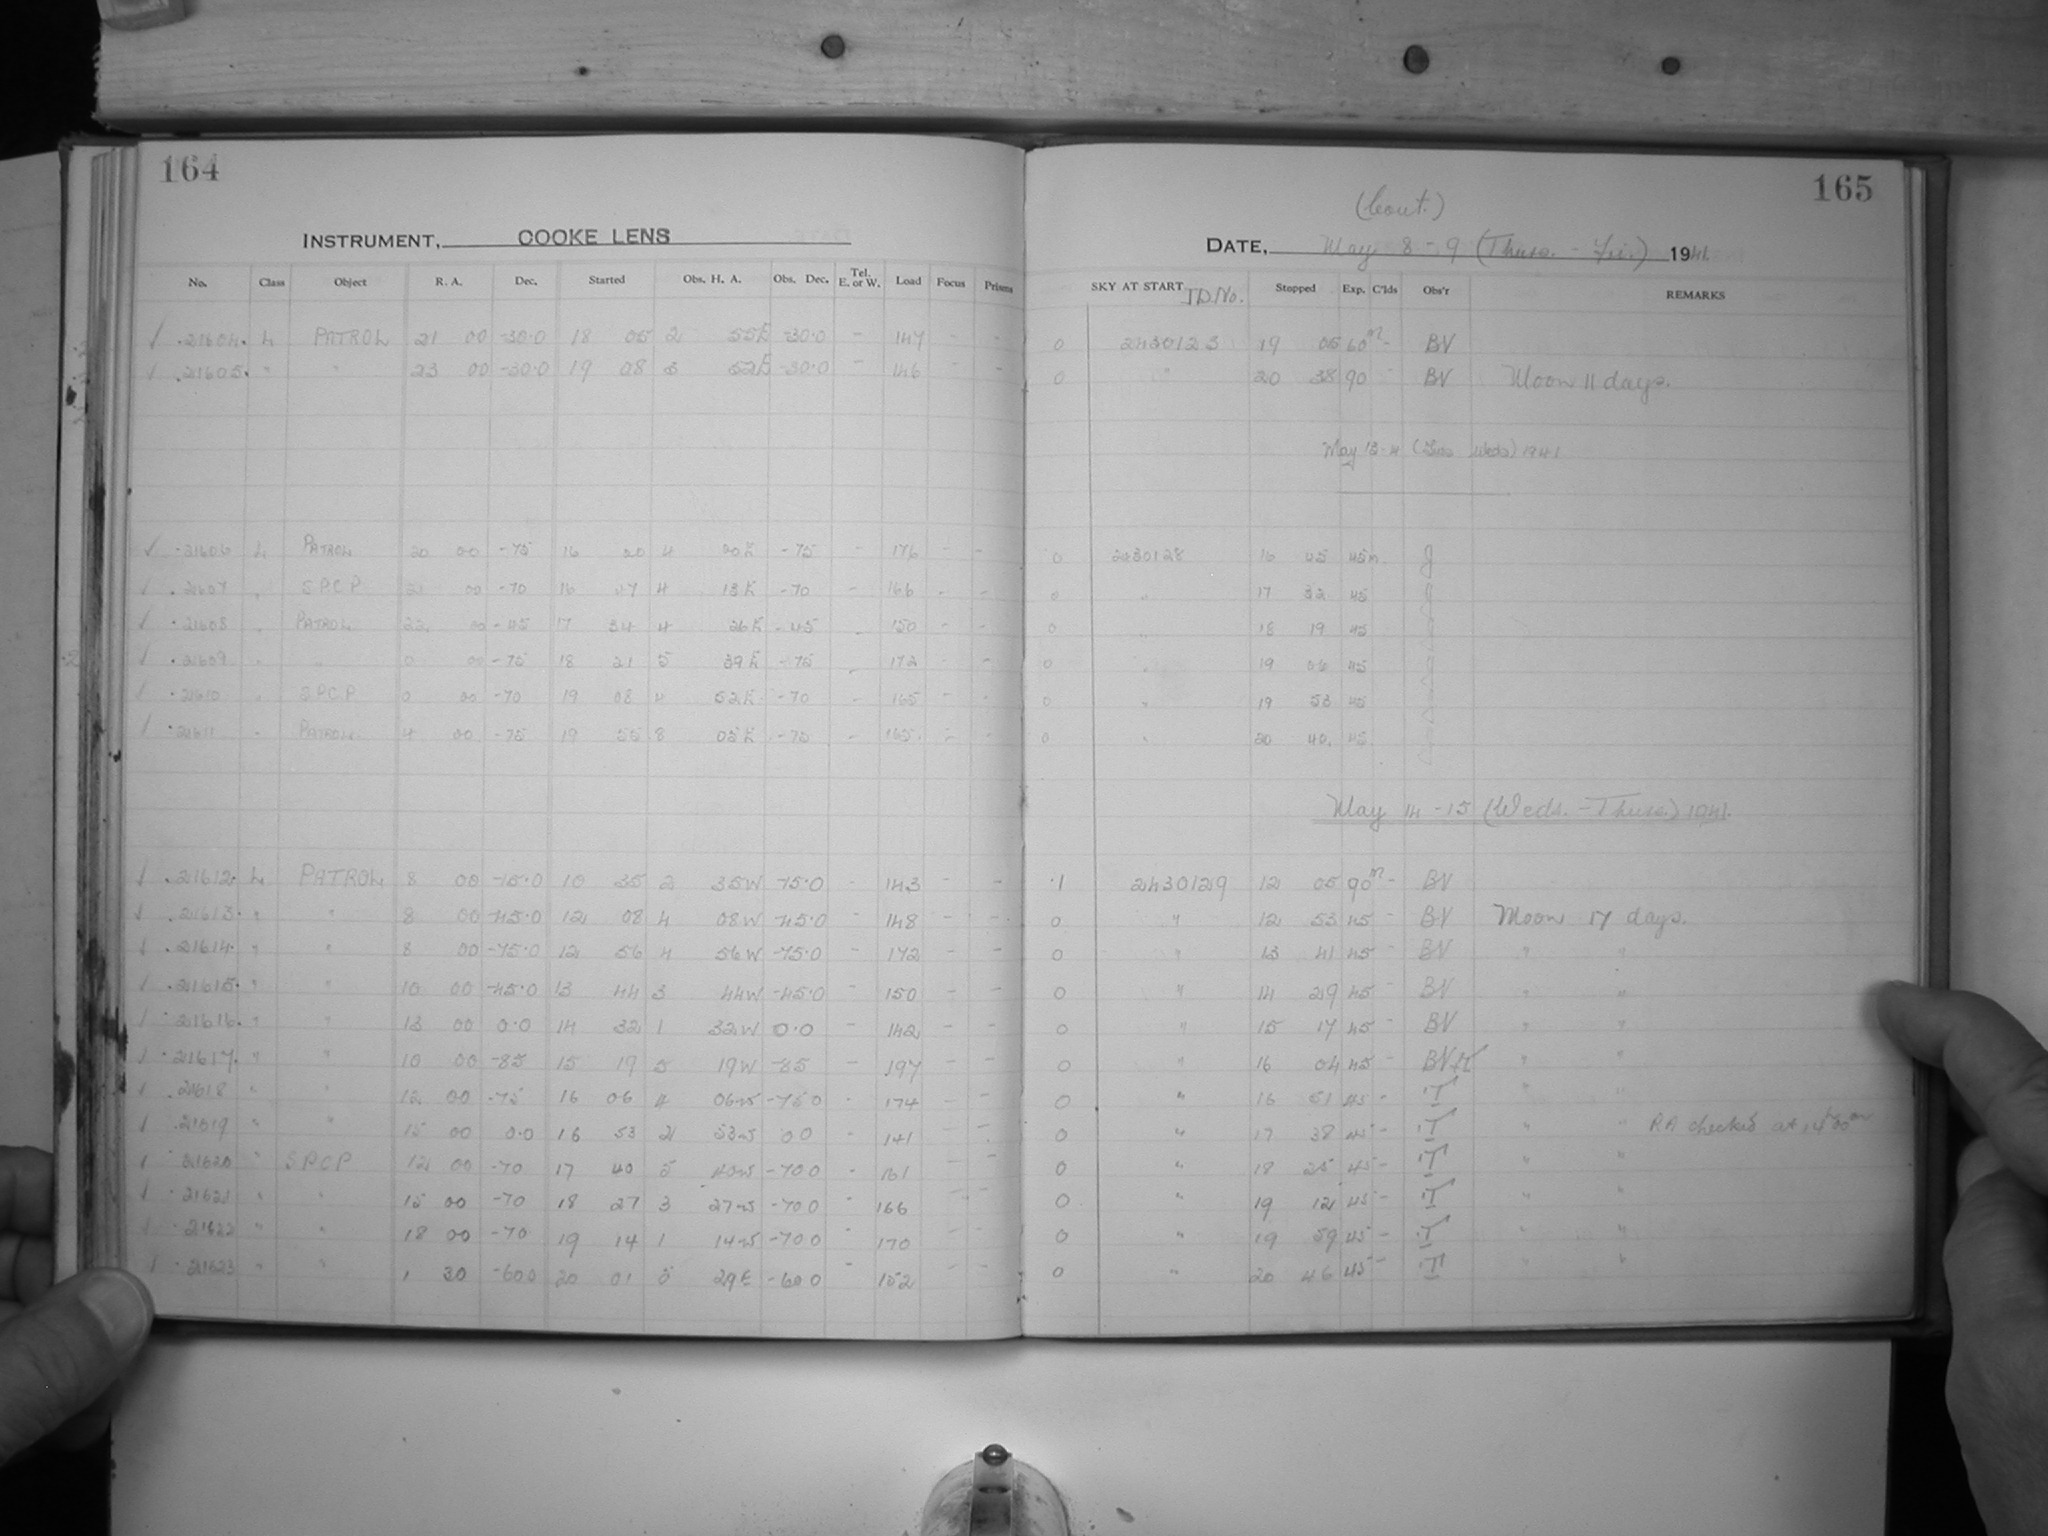 164
INSTRUMENT, COOKE LENS
No. Class Object R. A. Dec. Started Obs. H. A. Obs. Dec. Tel. E. or W. Load Focus Prisms
√ .21604. L PATROL 21 00 -30.0 18 05 2 55E -30.0 - 147 - -
√ .21605. " " 23 00 -30.0 19 08 3 52E -30.0 - 146 - -
√ .21606 L PATROL 20 00 -75 16 00 4 00E -75 - 176 - -
√ .21607 " SPCP 21 00 -70 16 47 4 13E -70 - 166 - -
√ .21608 " PATROL 22 00 -45 17 34 4 26E -45 - 150 - -
√ .21609 " " 0 00 -75 18 21 5 39E -75 - 172 - -
√ .21610 " SPCP 0 00 -70 19 08 4 52E -70 - 165 - -
√ .21611 " PATROL 4 00 -75 19 55 8 05E -75 - 165 - -
√ .21612. L PATROL 8 00 -15.0 10 35 2 35W -15.0 - 143 - -
√ .21613. " " 8 00 -45.0 12 08 4 08W -45.0 - 148 - -
√ .21614. " " 8 00 -75.0 12 56 4 56W -75.0 - 172 - -
√ .21615. " " 10 00 -45.0 13 44 3 44W -45.0 - 150 - -
√ .21616. " " 13 00 0.0 14 32 1 32W 0.0 - 142 - -
√ .21617. " " 10 00 -85 15 19 5 19W -85 - 197 - -
√ .21618 " " 12 00 -75 16 06 4 06W -75 0 - 174 - -
√ .21619 " " 15 00 0.0 16 53 2 53W 0 0 - 141 - -
√ .21620 " SPCP 12 00 -70 17 40 5 40W -70 0 - 161 - -
√ .21621 " " 15 00 -70 18 27 3 27W -70 0 - 166 - -
√ .21622 " " 18 00 -70 19 14 1 14W -70 0 - 170 - -
√ .21623 " " 1 30 -60 0 20 01 5 29E -60 0 - 152 - -
165
(Cont.)
DATE, May 8-9 (Thurs. - Fri.) 1941.
SKY AT START JD.No. Stopped Exp. C'lds Obs'r REMARKS
0 2430123 19 05 60m - BV
0 " 20 38 90 - BV Moon 11 days.
May 13-14 (Tues Weds) 1941
0 2430128 16 45 45m J
0 " 17 32 45 J
0 " 18 19 45 J
0 " 19 06 45 J
0 " 19 53 45 J
0 " 20 40. 45 J
May 14-15 (Weds. - Thurs.) 1941.
.1 2430129 12 05 90m - BV
0 " 12 53 45 - BV Moon 17 days.
0 " 13 41 45 - BV " "
0 " 14 29 45 - BV " "
0 " 15 17 45 - BV " "
0 " 16 04 45 - BV " "
0 " 16 51 45 - T " "
0 " 17 38 45 - T " " RA checked at 14h00m
0 " 18 25 45 - T " "
0 " 19 12 45 - T " "
0 " 19 59 45 - T " "
0 " 20 46 45 - T " "